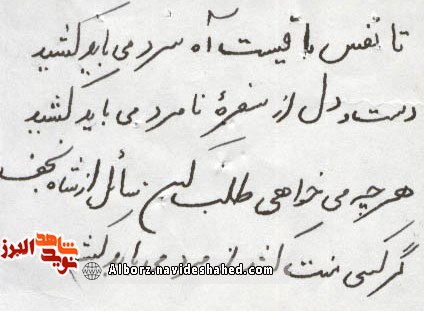 تا نفس باقیست آه سرد می باید کشید
دست و دل از سفرهٔ نامرد می باید کشید
هر چه می خواهی طلب کن سائل از شاه نجف
گر کسی منت کشد از مرد می باید کشید
نوید شاهد البرز
Alborz.navideshahed.com